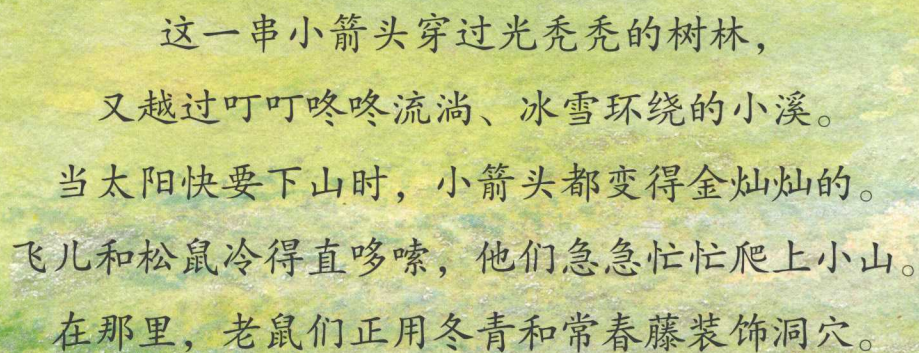 这一串小箭头穿过光秃秃的树林，
又越过叮叮咚咚流淌、冰雪环绕的小溪。
当太阳快要下山时，小箭头都变得金灿灿的。
飞儿和松鼠冷得直哆嗦，他们急急忙忙爬上小山。
在那里，老鼠们正用冬青和常春藤装饰洞穴。